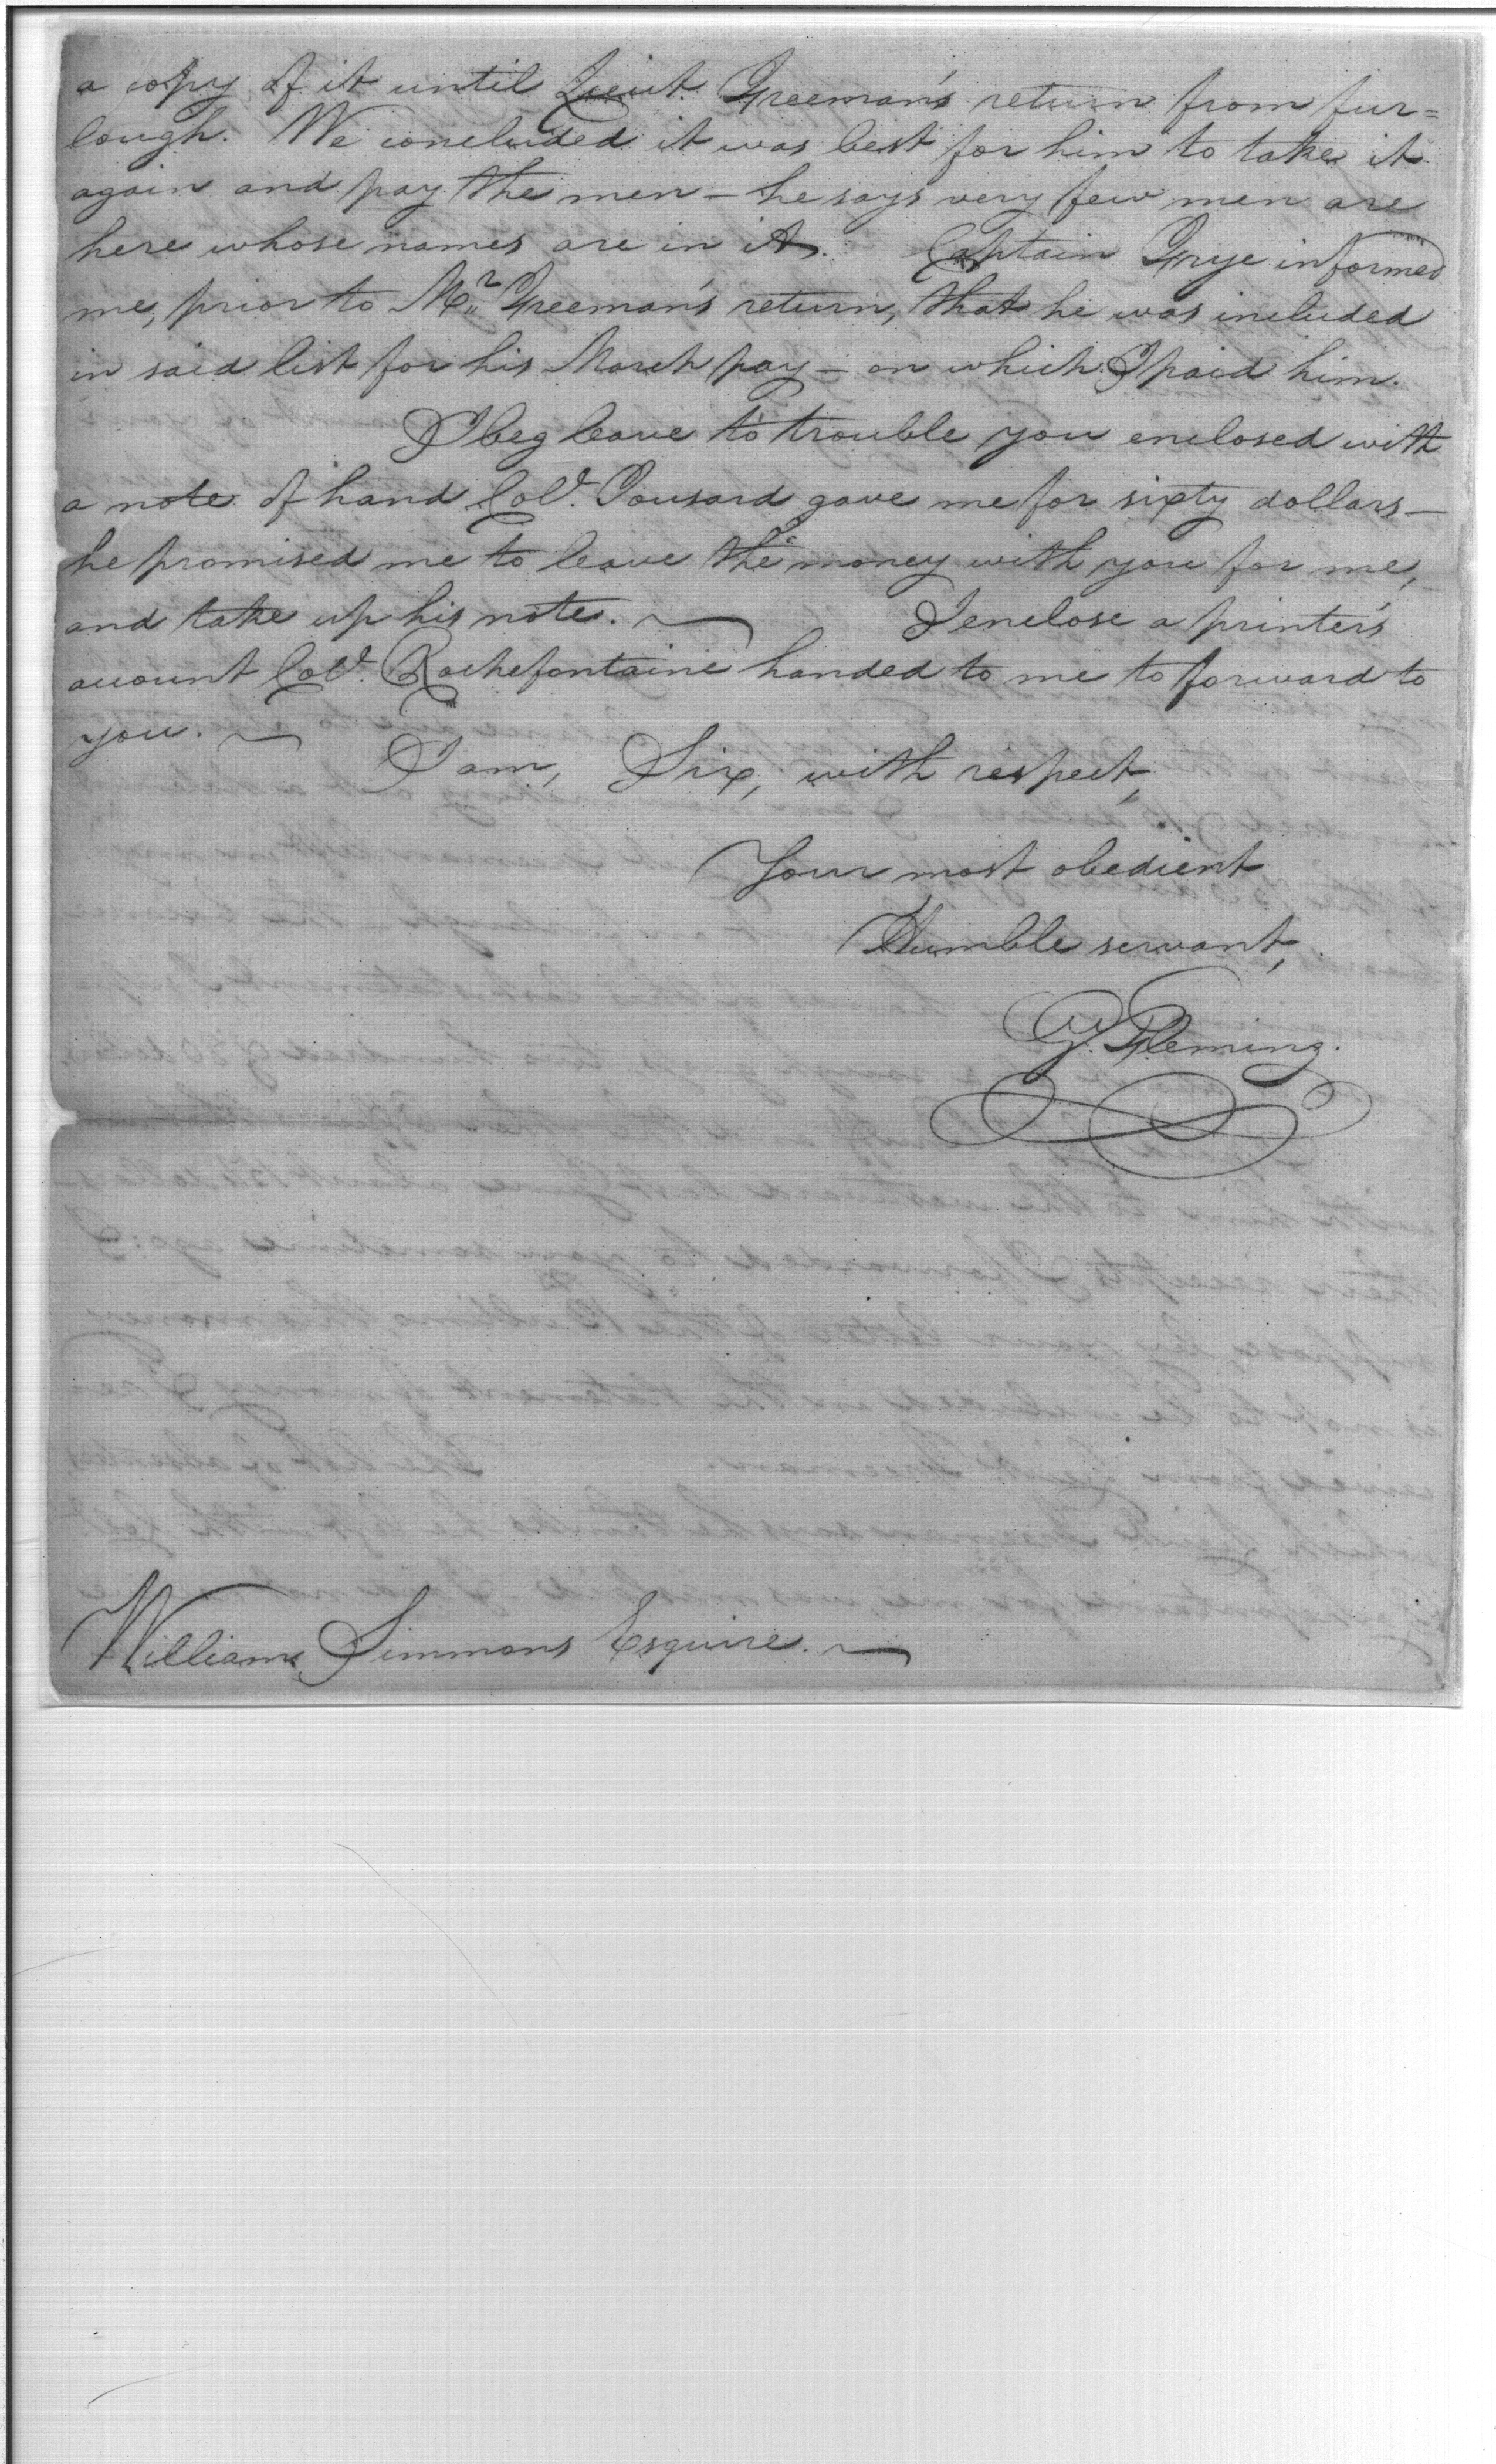 a copy of it until Lieut. Freeman's return from fur=
lough. We concluded it was best for him to take it
again and pay the men – he says very few men are
here whose names are in it. Captain Frye informed
me, prior to Mr. Freeman's return, that he was included
in said list for his March pay – on which I paid him.
I beg leave to trouble you enclosed with
a note of hand Colo. Tousard gave me for sixty dollars –
he promised me to leave the money with you for me,
and take up his note. I enclose a printer's
account Colo. Rochefontaine handed to me to forward to
you.
I am, Sir, with respect,
Your most obedient
Humble servant,
G. Fleming.
William Simmons Esquire.